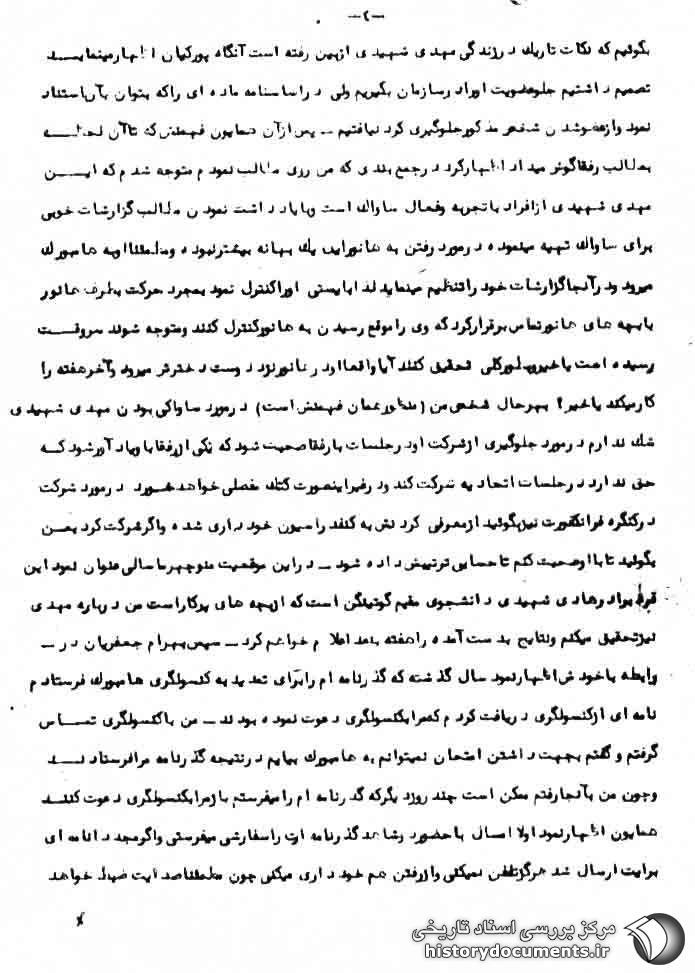 -۲-
بگوئیم که نکات تاریک در زندگی مهدی شهیدی ازبین رفته است آنگاه پورکیان اظهارمینمایــد
تصمیم داشتیم جلوعضویت اورادرسازمان بگیریم ولی در اساسنامه ماده ای راکه بتوان بآن استناد
نمود وازعضوشدن شخص مذکورجلوگیری کرد نیافتیم – پس ازآن همایون قهطش که تاآن لحظــه
بمطالب رفقاگوش میداد اظهارکرد در جمع بندی که من روی مطالب نمودم متوجه شدم که ایــن
مهدی شهیدی ازافراد باتجربه وفعال ساواک است وبایادداشت نمودن مطالب گزارشات خوبی
برای ساواک تهیه مینموده درمورد رفتن به هانورایی یک بهانه بیشترنبوده ومطمئنااوبه هامبورگ
میرود ودرآنجاگزارشات خود راتنظیم مینماید لذابایستی اوراکنترل نمود بمجرد حرکت بطرف هانور
بابچه های هانورتماس برقرارکرد که وی راموقع رسیدن به هانورکنترل کنند ومتوجه شوند سروقــت
رسیده است یاخیروبطورکلی تحقیق کنند آیاواقعااودرهانورنزد دوست دخترش میرود وآخرهفته را
کارمیکند یاخیر؟ بهرحال شخص من (منظورهمان قهطش است) درمورد ساواکی بودن مهدی شهیدی
شک ندارم درمورد جلوگیری ازشرکت اودرجلسات بارفقاصحبت شود که یکی ازرفقا باویادآورشود کــه
حق ندارد درجلسات اتحادیه شرکت کند ودرغیراینصورت کتک مفصلی خواهد خورد درمورد شرکت
درکنگره فرانکفورت نیزبگوئید ازمعرفی کردنش به کنفدراسیون خودداری شده واگرشرکت کرد بمن
بگوئید تابااوصحبت کنم تاحسابی ترتیبش داده شود – دراین موقعیت منوچهرماسالی عنوان نموداین
فرد برادرهادی شهیدی دانشجوی مقیم گوتینگن است که ازبچه های پرکاراست من درباره مهدی
نیزتحقیق میکنم ونتایج بدست آمده راهفته بعد اعلام خواهم کرد – سپس بهرام جعفریان در –
رابطه باخودش اظهارنمود سال گذشته که گذرنامه ام رابرای تمدید به کنسولگری هامبورگ فرستادم
نامه ای ازکنسولگری دریافت کردم که مرابکنسولگری دعوت نموده بودند – من باکنسولگری تمــاس
گرفتم و گفتم بجهت داشتن امتحان نمیتوانم به هامبورگ بیایم درنتیجه گذرنامه مرافرستادنــد
وچون من بآنجارفتم ممکن است چند روزدیگرکه گذرنامه ام رامیفرستم بازمرابکنسولگری دعوت کننــد
همایون اظهارنمود اولا امسال باحضوردوشاهد گذرنامه ات راسفارشی میفرستی واگرمجددانامه ای
برایت ارسال شد هرگزتلفن نمیکنی وازرفتن هم خودداری میکنی چون مطمئناصدایت ضبط خواهد
مرکز بررسی اسناد تاریخی
historydocuments.ir